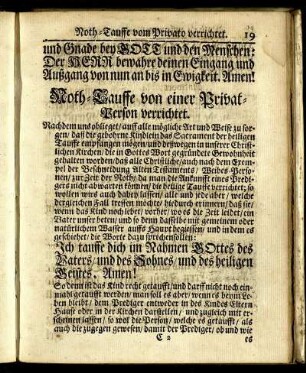 Noth-Tauffe vom Privato verrichtet. 19
und Gnade bey GOTT und den Menschen:
Der HERR bewahre deinen Eingang und
Außgang von nun an bis in Ewigkeit. Amen!
Noth-Tauffe von einer Privat-
Person verrichtet.
Nachdem uns oblieget / auff alle mögliche Art und Weise zu sor-
gen / daß die gebohrne Kindlein das Sacrament der heiligen
Tauffe empfangen mögen / und deßwegen in unserer Christ-
lichen Kirchen / die in Gottes Wort gegründete Gewohnheit
gehalten worden / daß alle Christliche / auch nach dem Exem-
pel der Beschneidung Alten Testaments / Weibes-Perso-
nen / zur Zeit der Noth / da man die Ankunfft eines Predi-
gers nicht abwarten können / die heilige Tauffe verrichtet; so
wollen wir es auch dahero lassen / alle und jede aber / welche
dergleichen Fall treffen möchte hiedurch erinnern / daß sie /
wenn das Kind noch lebet / vorher / wo es die Zeit leidet / ein
Vater unser beten / und so denn dasselbe mit gemeinem oder
natürlichem Wasser auffs Haupt begiessen / und indem es
geschiehet / die Worte dazu sprechen sollen:
Ich tauffe dich im Nahmen GOttes des
Vaters / und des Sohnes / und des heiligen
Geistes. Amen!
So denn ist das Kind recht getaufft / und darff nicht noch ein-
mahl getaufft werden / man soll es aber / wenn es beym Le-
ben bleibt / dem Prediger entweder in des Kindes Eltern
Hause oder in der Kirchen darstellen / und zugleich mit er-
scheinen lassen / so wol die Person / welche es getaufft / als
auch die zugegen gewesen / damit der Prediger / ob und wie
C 2 es